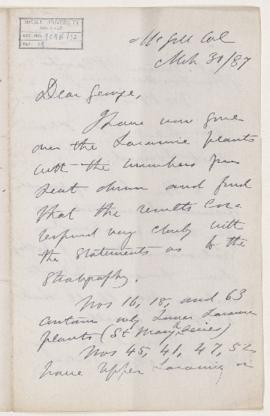 McGill Col
Mch 31/87
Dear George,
I have now gone
over the Laramie plants
with the numbers you
sent down and find
that the results cor-
respond very closely with
the statements as to the
Stratigraphy.
Nos 16, 18, and 63
contain only Lower Laramie
plants (St Mary Series)
Nos 45, 41, 47, 52
have Upper Laramie